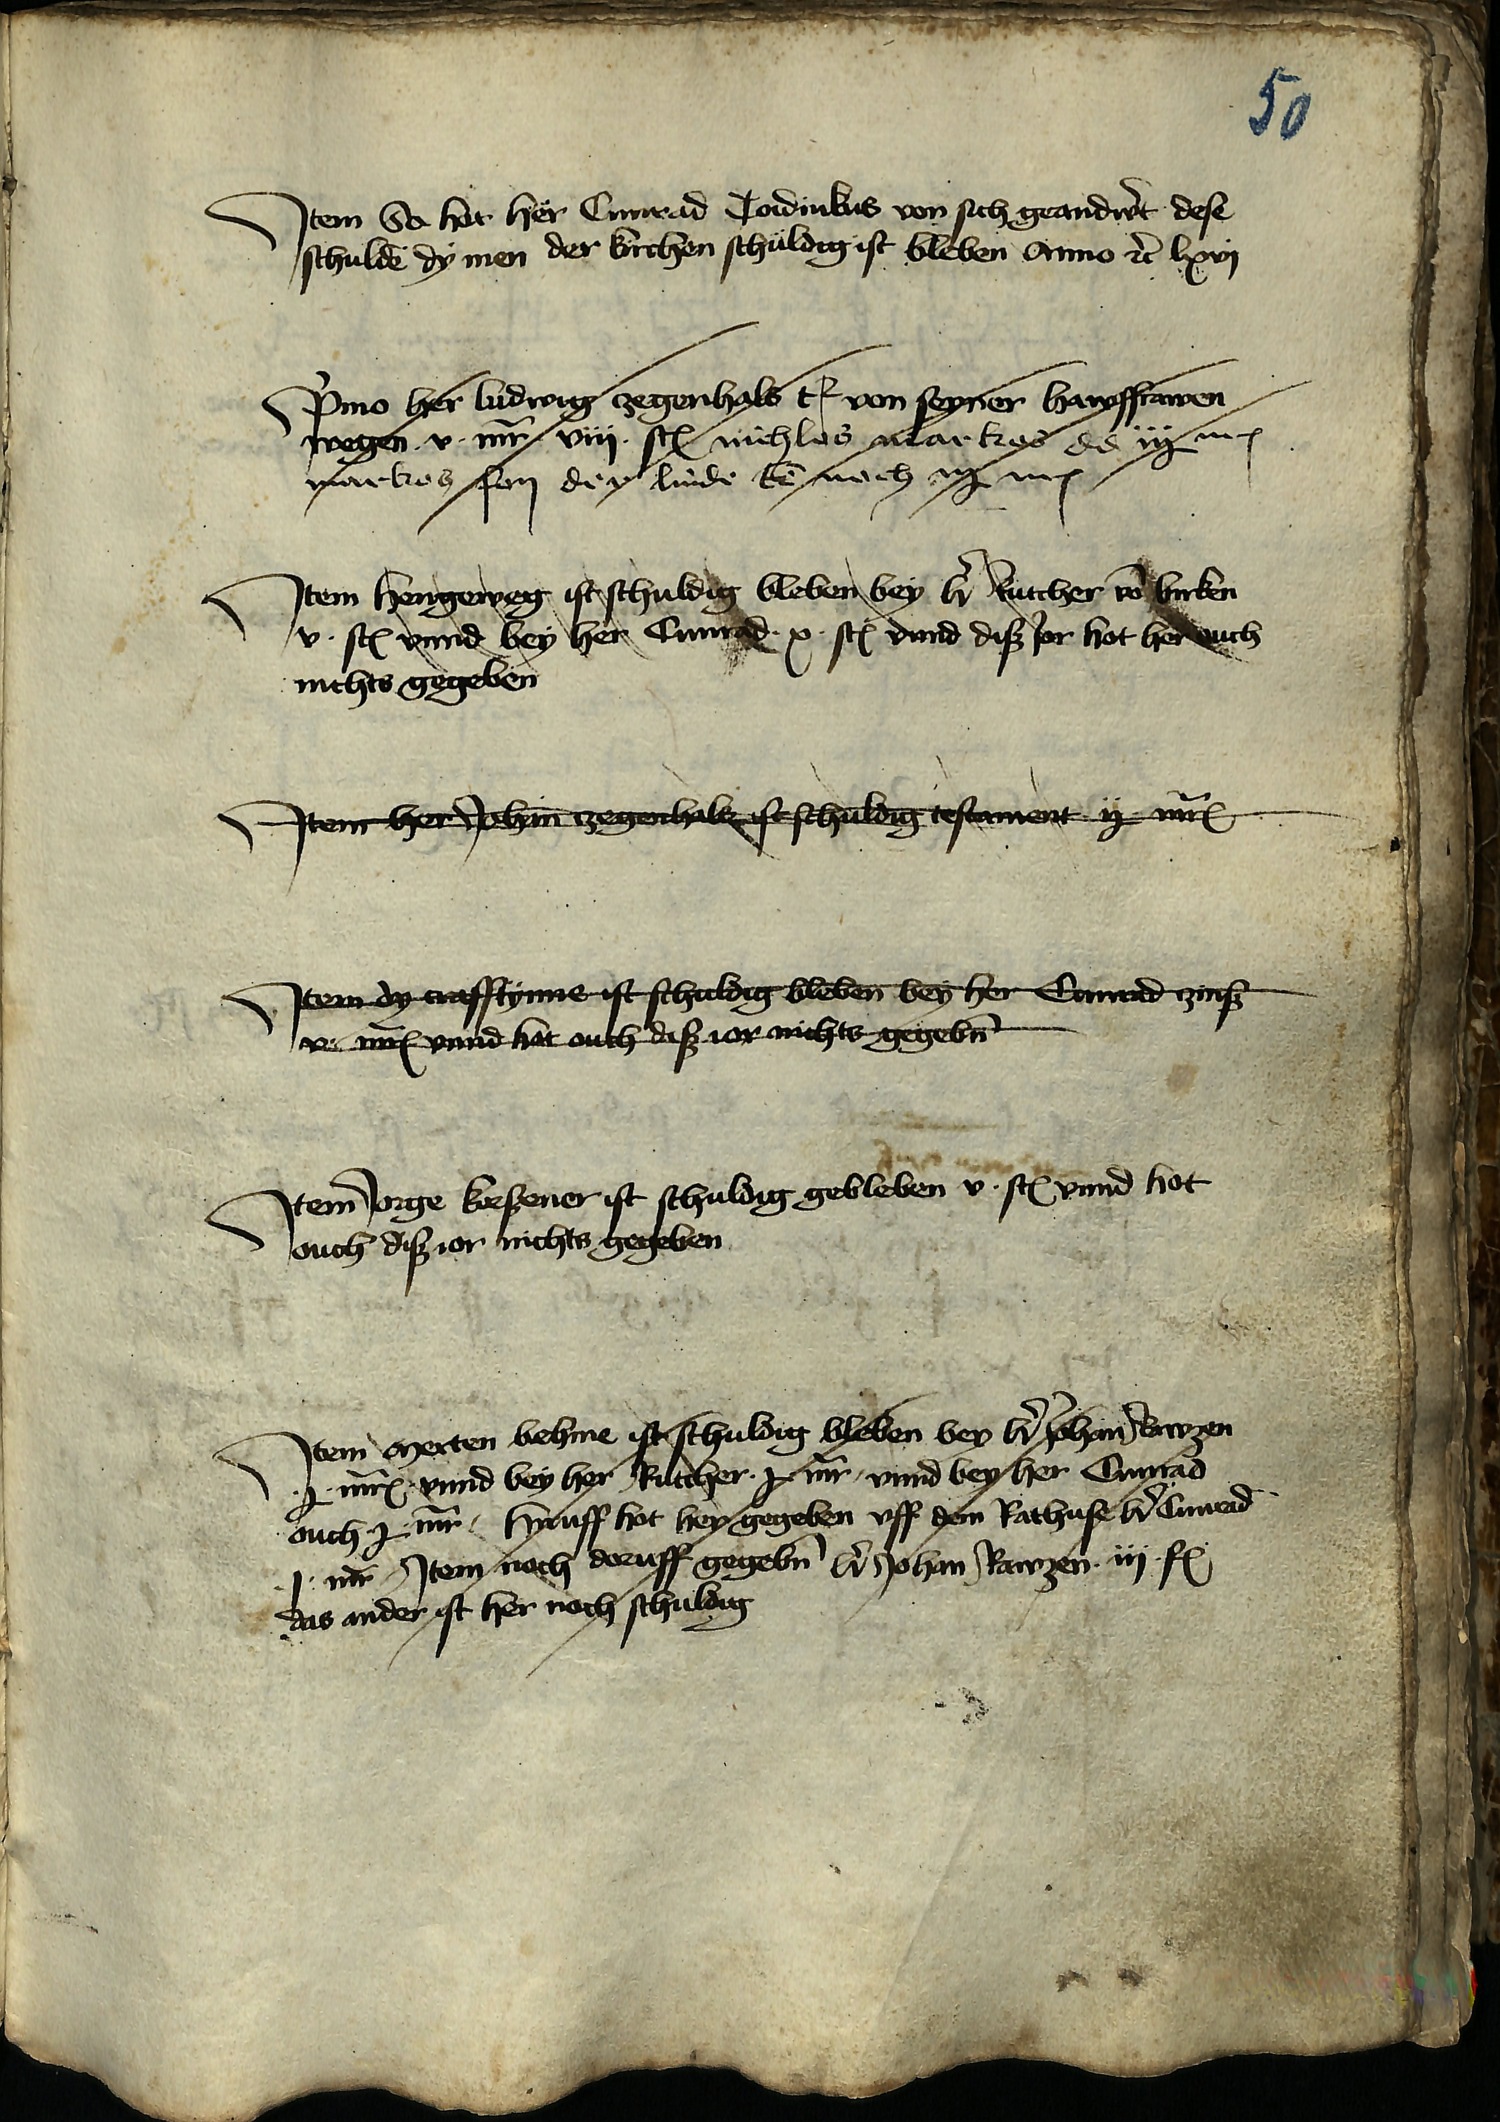 50
Item So hat her Cunrad Toidinkus von sich geandw't dese
schulde dy men der kirchen schuldig ist bleben Anno rc lxvj
P'mo her ludwig zegenhals von seyner hawsffrawen
wegen · v · mr viiij · sc nichlos markos dd iij mr
markos fon der linde noch mr
Item hengeweg ist schuldig bleben bey h' Rutcher vo birken
v · sc vnnd bey her Cunrad · x · sc vnnd diß Jor hot her ouch
nichts gegeben
Item her Johan zegenhals ist schuldig testament ij mrc
Item dy crafftynne ist schuldig bleben bey her Cunrad zinß
v · mrc vnnd hat ouch diß ior nichts gegebn
Item Jorge korßener ist schuldig gebleben v · sc vnnd hot
ouch diß ior nichts gegeben
Item merten behme ist schuldig bleben bey h' Johan Rawzen
· j · mrc vnnd bey her Rutcher · j mr vnnd bey her Cunrad
ouch j mr hiruff hot hey gegeben vff dem Rathuse h' Cunrad
· j · mr Item noch doruff gegebn h' Johan Rawzen · iij · sc
das ander ist her noch schuldig